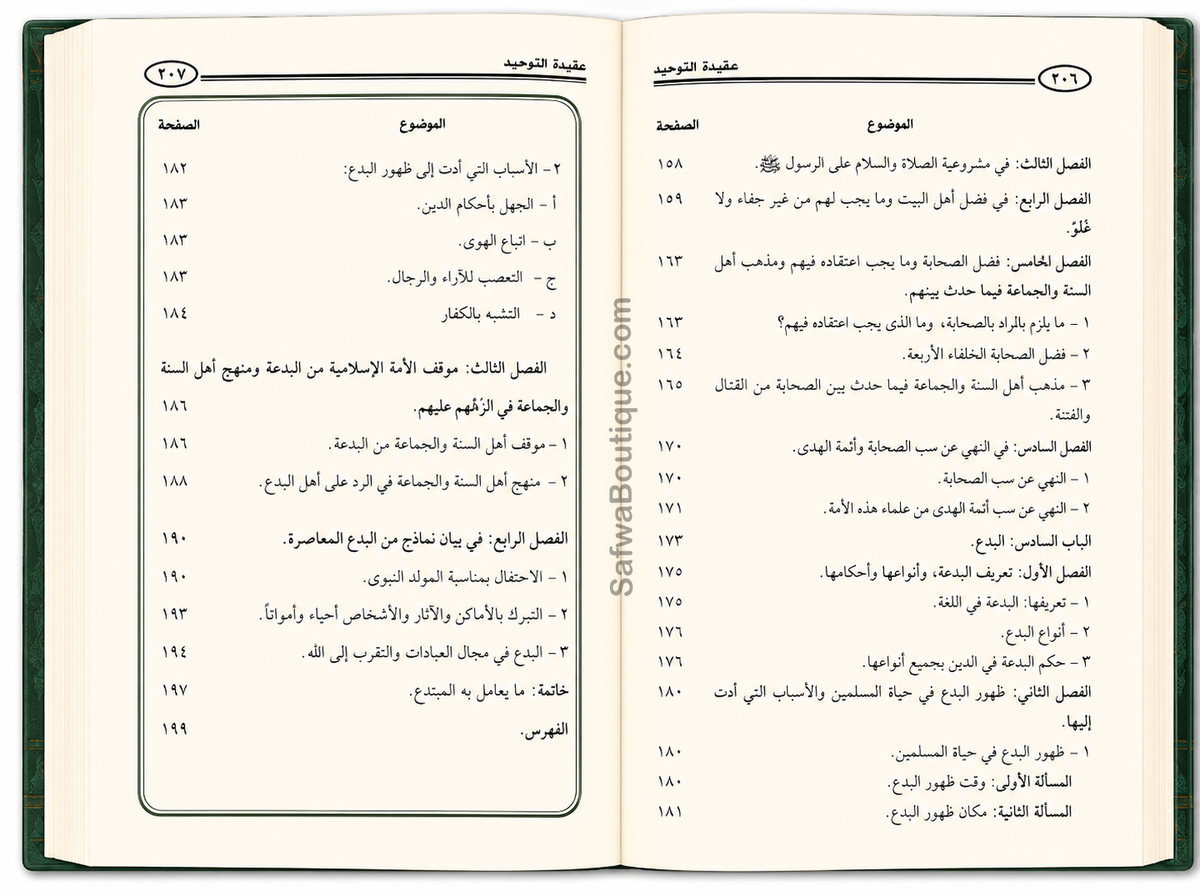 عقيدة التوحيد
٢٠٦
الموضوع الصفحة
الفصل الثالث: في مشروعية الصلاة والسلام على الرسول ﷺ. ١٥٨
الفصل الرابع: في فضل أهل البيت وما يجب لهم من غير جفاء ولا ١٥٩
غُلوّ.
الفصل الخامس: فضل الصحابة وما يجب اعتقاده فيهم ومذهب أهل ١٦٣
السنة والجماعة فيما حدث بينهم.
١ - ما يلزم بالمراد بالصحابة، وما الذى يجب اعتقاده فيهم؟ ١٦٣
٢ - فضل الصحابة الخلفاء الأربعة. ١٦٤
٣ - مذهب أهل السنة والجماعة فيما حدث بين الصحابة من القتال ١٦٥
والفتنة.
الفصل السادس: في النهي عن سب الصحابة وأئمة الهدى. ١٧٠
١ - النهي عن سب الصحابة. ١٧٠
٢ - النهي عن سب أئمة الهدى من علماء هذه الأمة. ١٧١
الباب السادس: البدع. ١٧٣
الفصل الأول: تعريف البدعة، وأنواعها وأحكامها. ١٧٥
١ - تعريفها: البدعة في اللغة. ١٧٥
٢ - أنواع البدع. ١٧٦
٣ - حكم البدعة في الدين بجميع أنواعها. ١٧٦
الفصل الثاني: ظهور البدع في حياة المسلمين والأسباب التي أدت ١٨٠
إليها.
١ - ظهور البدع في حياة المسلمين. ١٨٠
المسألة الأولى: وقت ظهور البدع. ١٨٠
المسألة الثانية: مكان ظهور البدع. ١٨١
عقيدة التوحيد
٢٠٧
الموضوع الصفحة
٢ - الأسباب التي أدت إلى ظهور البدع: ١٨٢
أ - الجهل بأحكام الدين. ١٨٣
ب - اتباع الهوى. ١٨٣
ج - التعصب للآراء والرجال. ١٨٣
د - التشبه بالكفار ١٨٤
الفصل الثالث: موقف الأمة الإسلامية من البدعة ومنهج أهل السنة
والجماعة في عليهم. ١٨٦
١ - موقف أهل السنة والجماعة من البدعة. ١٨٦
٢ - منهج أهل السنة والجماعة في الرد على أهل البدع. ١٨٨
الفصل الرابع: في بيان نماذج من البدع المعاصرة. ١٩٠
١ - الاحتفال بمناسبة المولد النبوى. ١٩٠
٢ - التبرك بالأماكن والآثار والأشخاص أحياء وأمواتاً. ١٩٣
٣ - البدع في مجال العبادات والتقرب إلى الله. ١٩٤
خاتمة: ما يعامل به المبتدع. ١٩٧
الفهرس. ١٩٩
SafwaBoutique.com